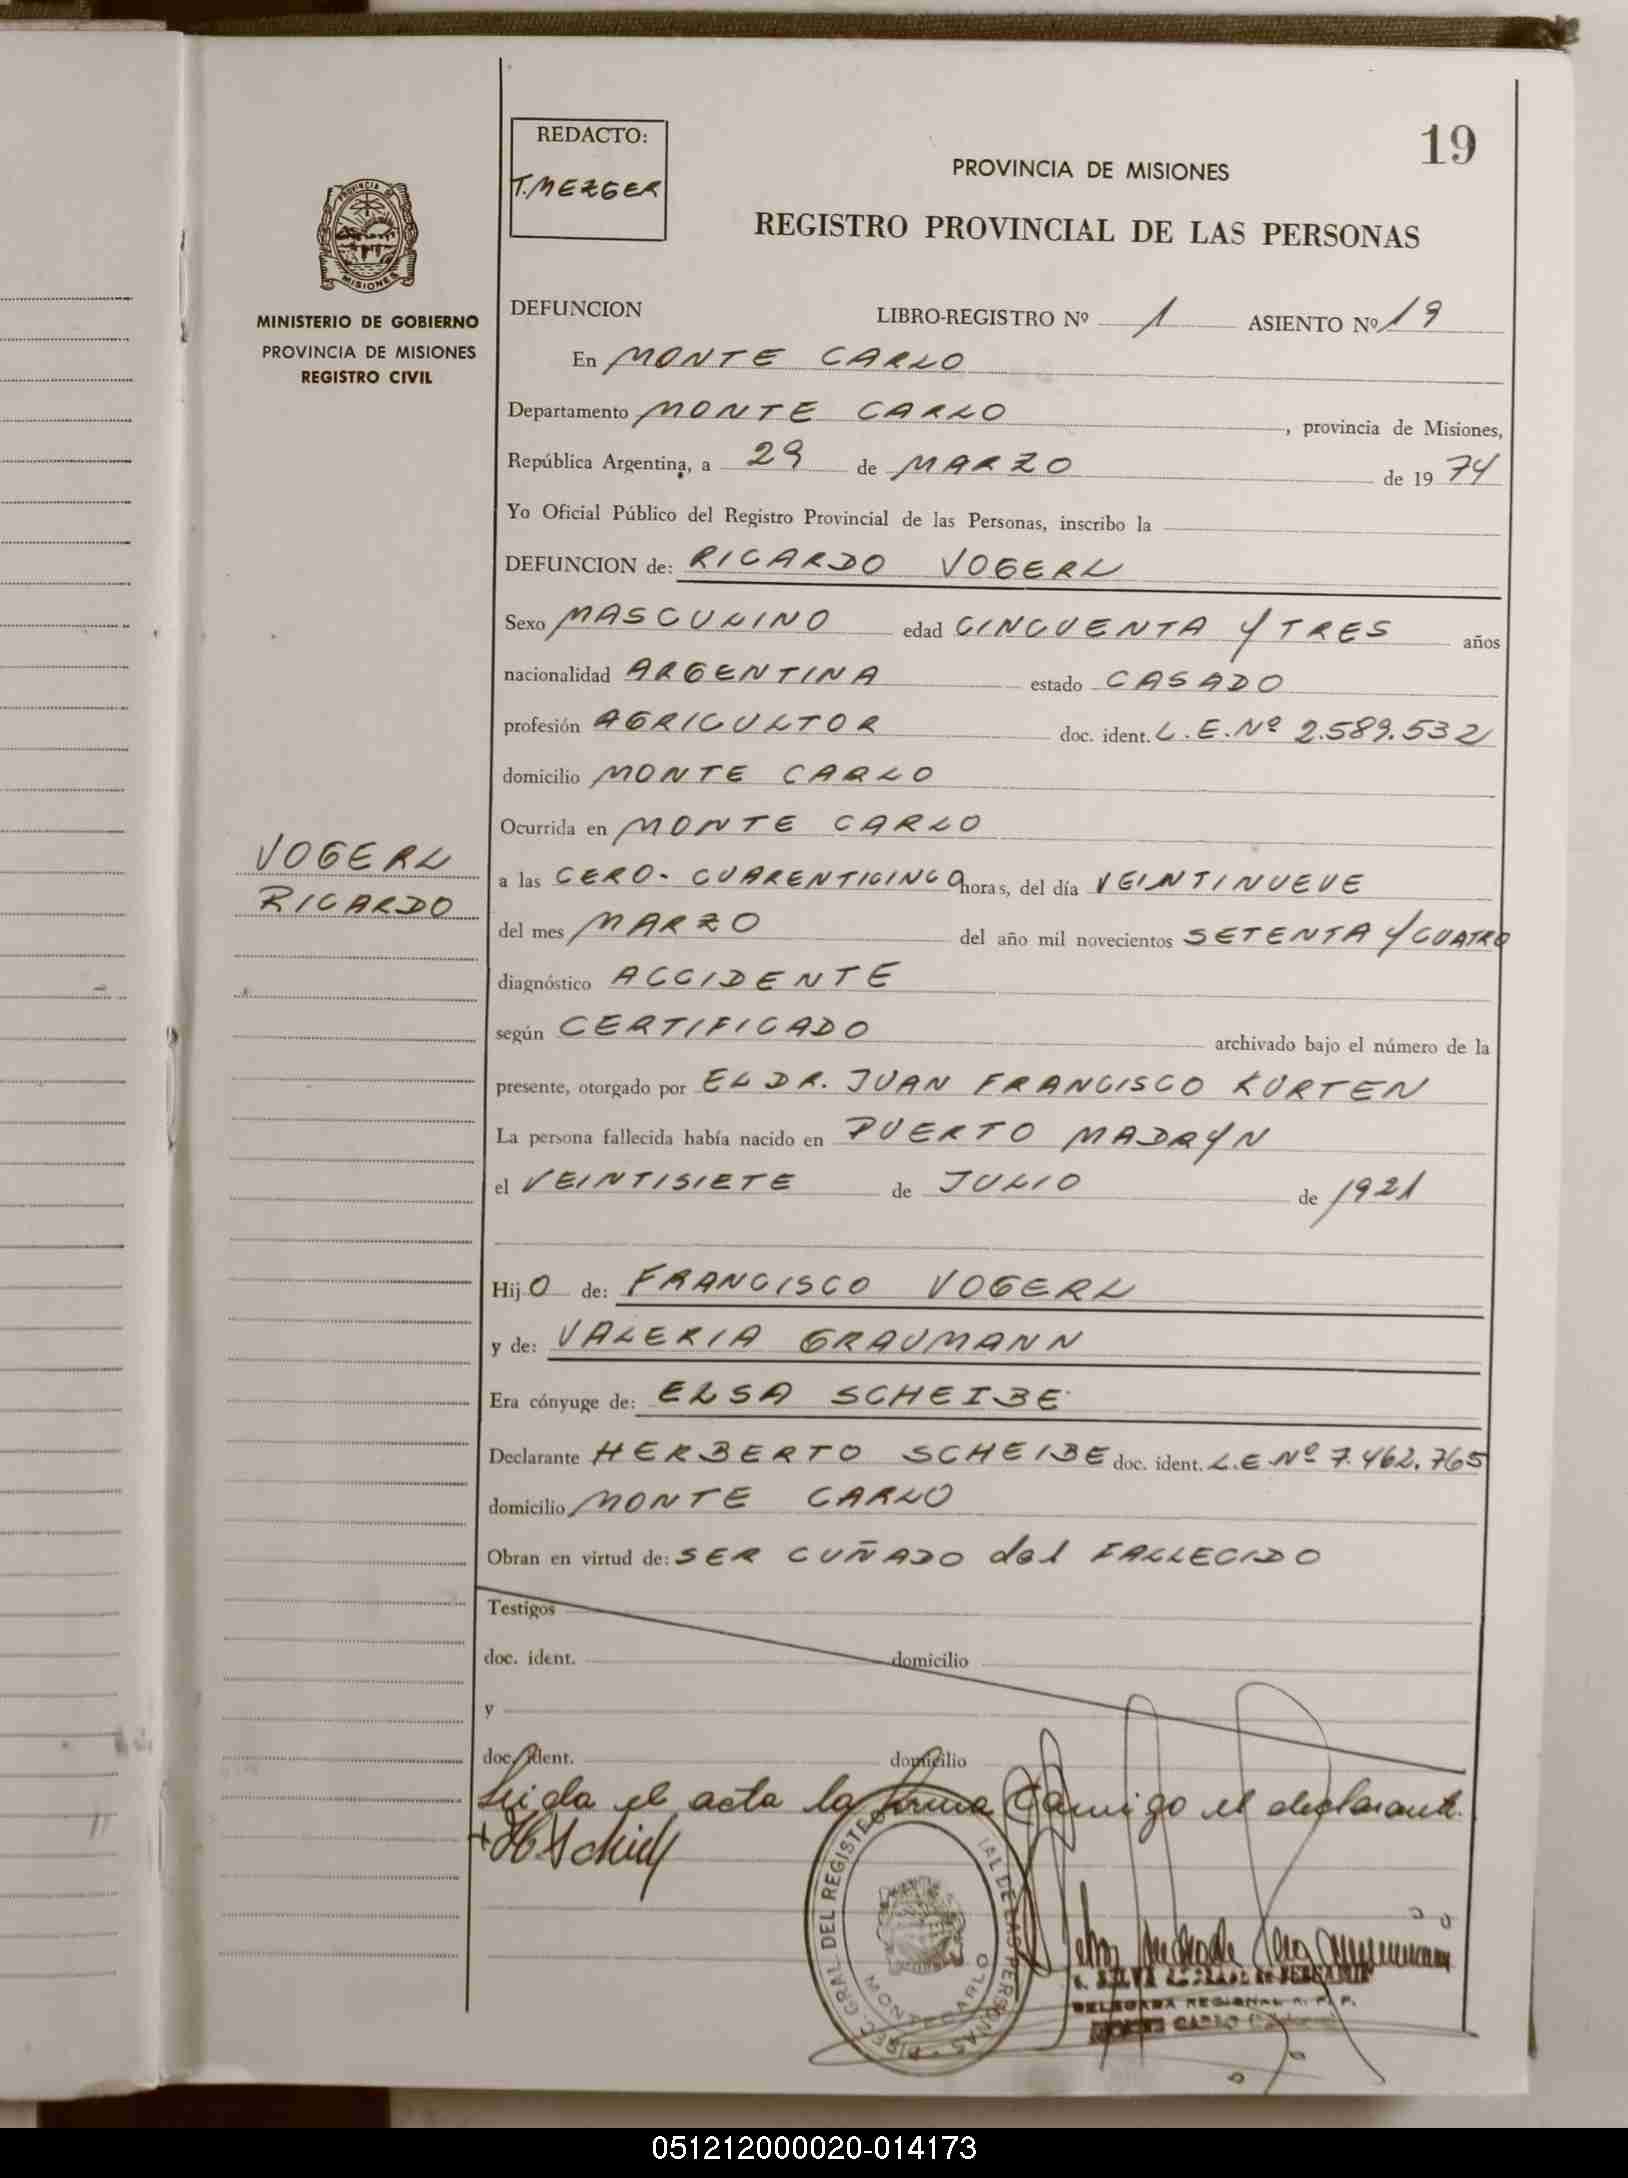 19
REDACTO:
T. MEZGER
PROVINCIA DE MISIONES
REGISTRO PROVINCIAL DE LAS PERSONAS
PROVINCIA DE
MISIONES
MINISTERIO DE GOBIERNO
PROVINCIA DE MISIONES
REGISTRO CIVIL
DEFUNCION LIBRO-REGISTRO Nº 1 ASIENTO Nº 19
En MONTE CARLO
Departamento MONTE CARLO, provincia de Misiones,
República Argentina, a 29 de MARZO de 1974
Yo Oficial Público del Registro Provincial de las Personas, inscribo la
DEFUNCION de: RICARDO VOGERL
Sexo MASCULINO edad CINCUENTA Y TRES años
nacionalidad ARGENTINA estado CASADO
profesión AGRICULTOR doc. ident. L.E.Nº 2.589.532
domicilio MONTE CARLO
Ocurrida en MONTE CARLO
VOGERL
RICARDO
a las CERO-CUARENTICINCO horas, del día VEINTINUEVE
del mes MARZO del año mil novecientos SETENTA Y CUATRO
diagnóstico ACCIDENTE
según CERTIFICADO archivado bajo el número de la
presente, otorgado por EL DR. JUAN FRANCISCO KURTEN
La persona fallecida había nacido en PUERTO MADRYN
el VEINTISIETE de JULIO de 1921
Hijo de: FRANCISCO VOGERL
y de: VALERIA GRAUMANN
Era cónyuge de: ELSA SCHEIBE
Declarante HERBERTO SCHEIBE doc. ident. L.E Nº 7.462.765
domicilio MONTE CARLO
Obran en virtud de: SER CUÑADO del FALLECIDO
Testigos
doc. ident. domicilio
y
doc. ident. domicilio
Leida el acta la firma Conmigo el declarante.
DEL REGISTRO DE LAS PERSONAS
MONTE CARLO
DELEGADA REGIONAL R. P. P.
MONTE CARLO
051212000020-014173